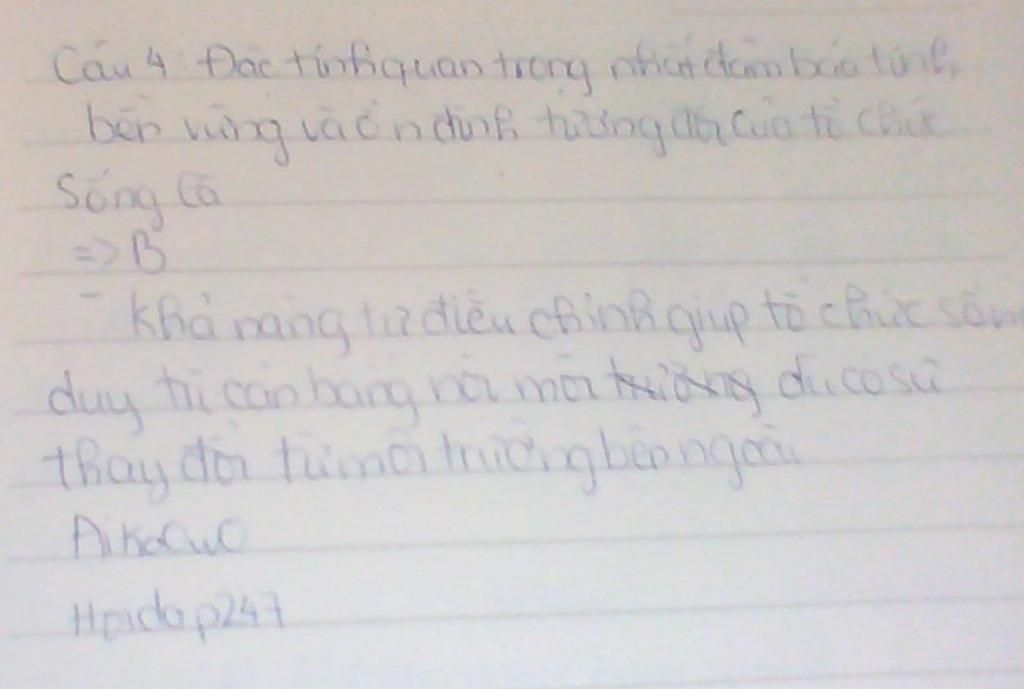 Câu 4: Đặc tính quan trọng nhất đảm bảo tính
bền vững và ổn định tương đối của tổ chức
Sống là
=> B
- Khả năng tự điều chỉnh giúp tổ chức sống
duy trì cân bằng nội môi trường dù có sự
thay đổi từ môi trường bên ngoài
AikaCuC
Hoidap247